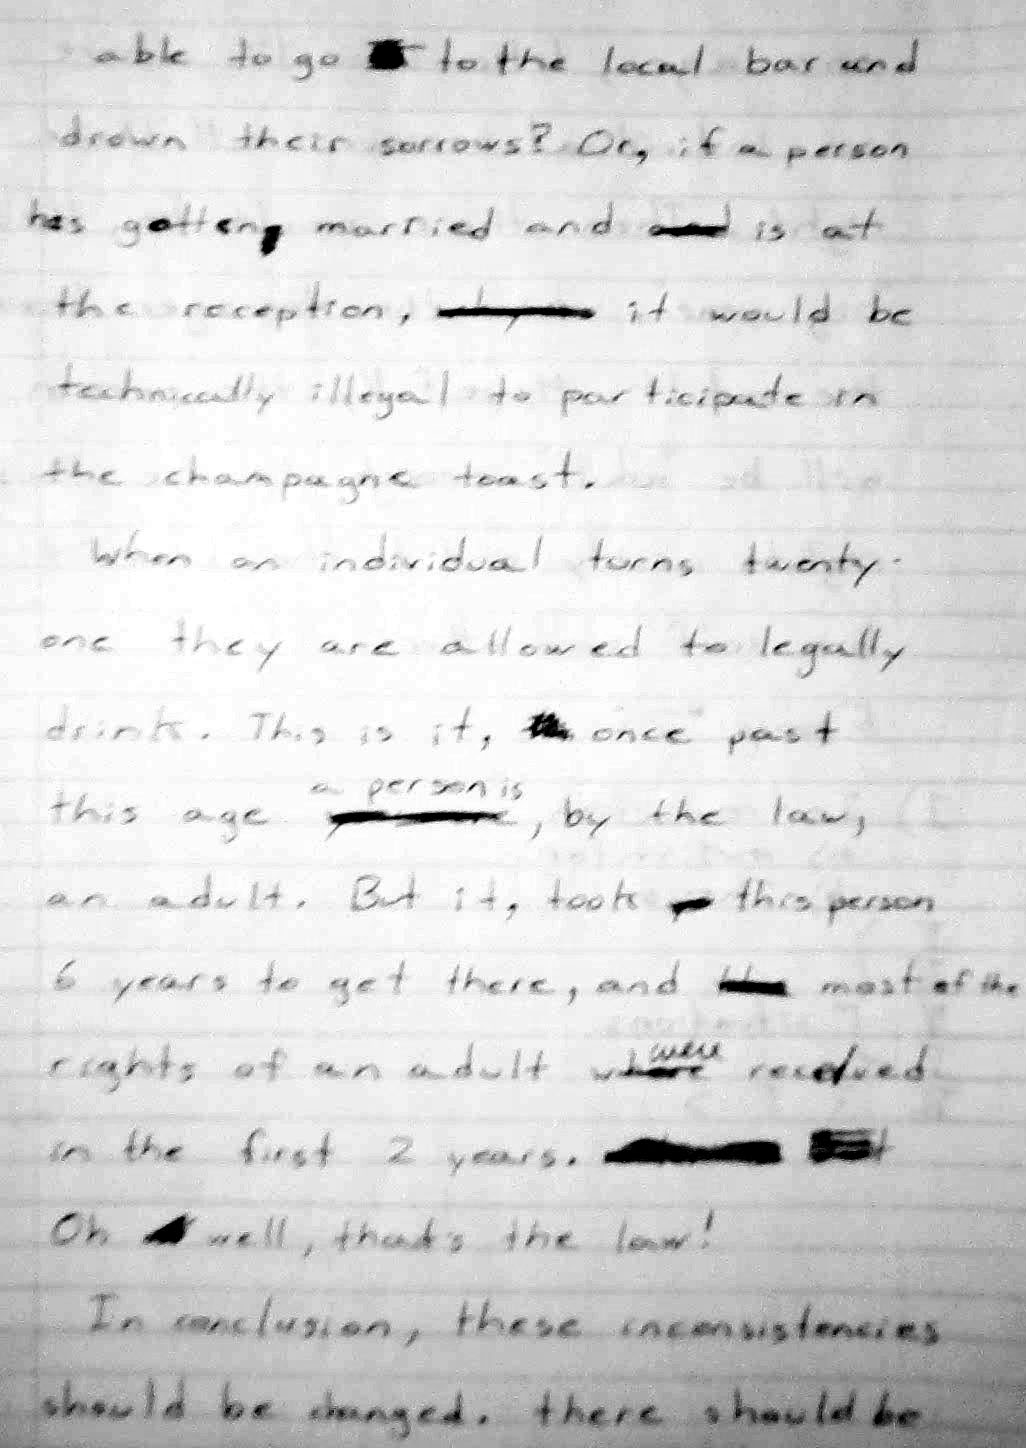 able to go to the local bar and
drown their sorrows? Or, if a person
has gotten married and is at
the reception, it would be
technically illegal to participate in
the champagne toast.
When an individual turns twenty-
one they are allowed to legally
drink. This is it, once past
a person is
this age , by the law,
an adult. But it, took this person
6 years to get there, and most of the
were
rights of an adult where received
in the first 2 years.
Oh well, that's the law!
In conclusion, these inconsistencies
should be changed. there should be